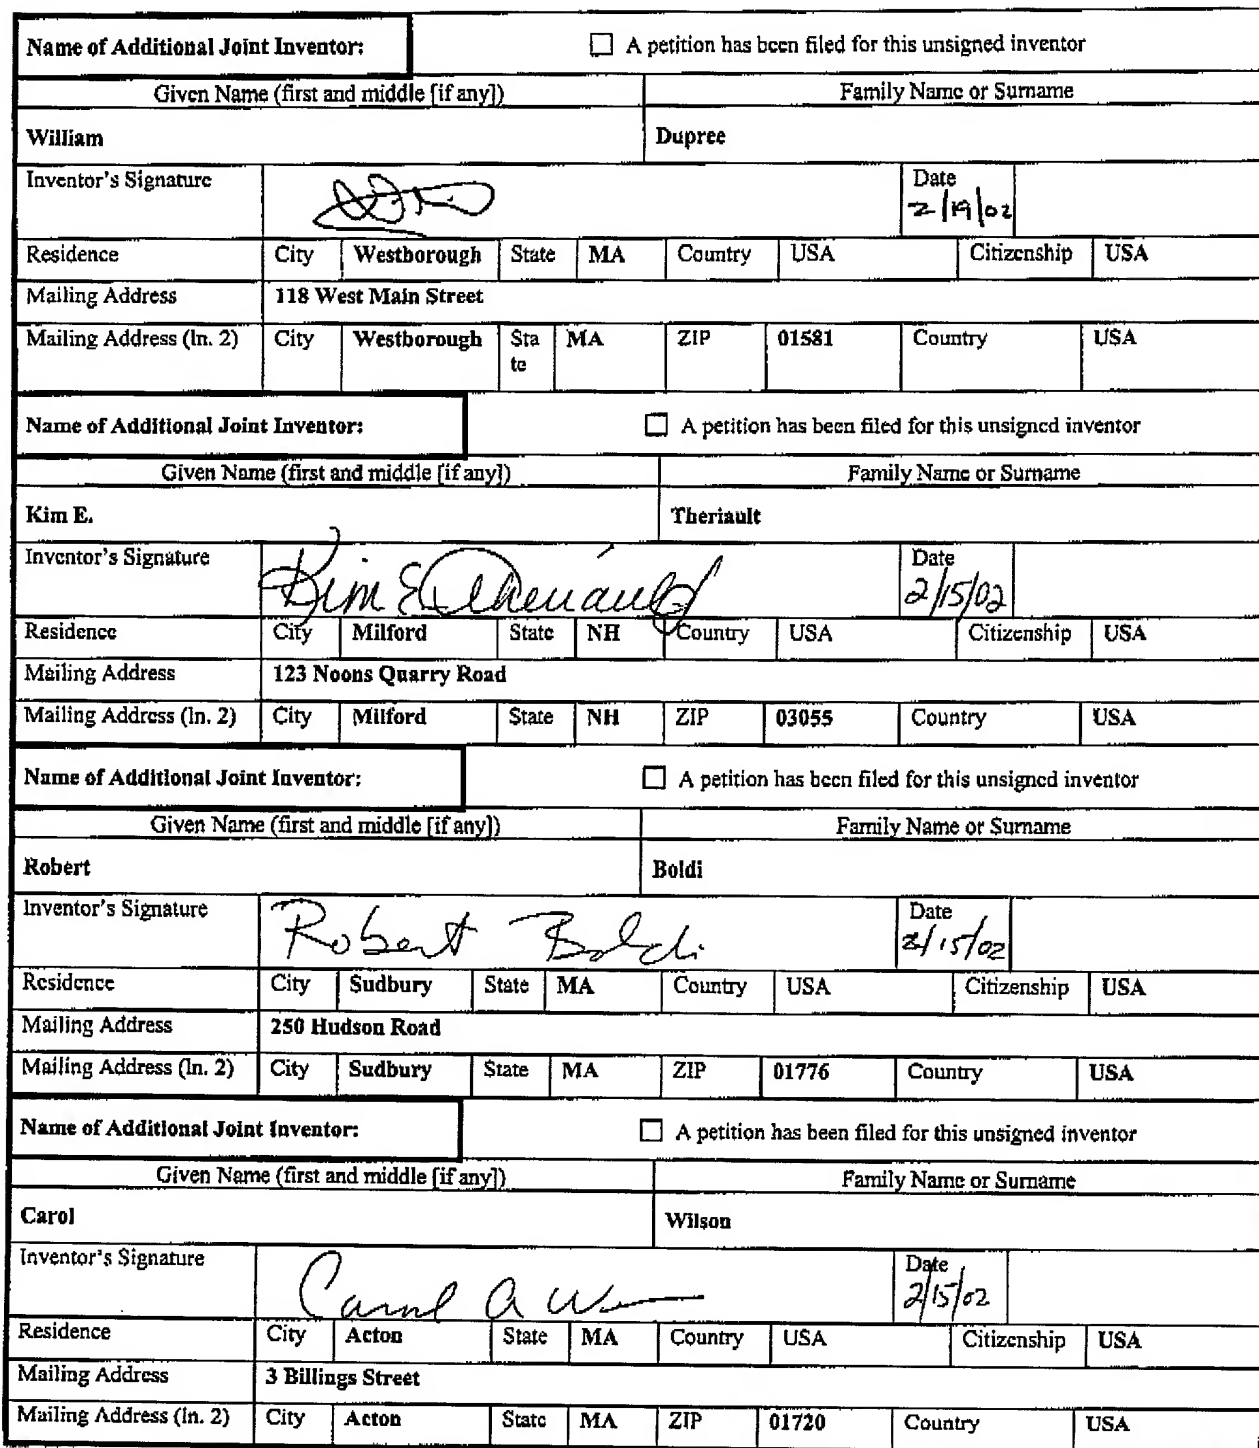 Name of Additional Joint Inventor: A petition has been filed for this unsigned inventor
Given Name (first and middle [if any]) Family Name or Surname
William Dupree
Inventor's Signature Date
2/19/02
Residence City Westborough State MA Country USA Citizenship USA
Mailing Address 118 West Main Street
Mailing Address (ln. 2) City Westborough Sta MA ZIP 01581 Country USA
te
Name of Additional Joint Inventor: A petition has been filed for this unsigned inventor
Given Name (first and middle [if any]) Family Name or Surname
Kim E. Theriault
Inventor's Signature Kim E Theriault Date
2/15/02
Residence City Milford State NH Country USA Citizenship USA
Mailing Address 123 Noons Quarry Road
Mailing Address (ln. 2) City Milford State NH ZIP 03055 Country USA
Name of Additional Joint Inventor: A petition has been filed for this unsigned inventor
Given Name (first and middle [if any]) Family Name or Surname
Robert Boldi
Inventor's Signature Robert Boldi Date
2/15/02
Residence City Sudbury State MA Country USA Citizenship USA
Mailing Address 250 Hudson Road
Mailing Address (ln. 2) City Sudbury State MA ZIP 01776 Country USA
Name of Additional Joint Inventor: A petition has been filed for this unsigned inventor
Given Name (first and middle [if any]) Family Name or Surname
Carol Wilson
Inventor's Signature Carol A Date
2/15/02
Residence City Acton State MA Country USA Citizenship USA
Mailing Address 3 Billings Street
Mailing Address (ln. 2) City Acton State MA ZIP 01720 Country USA